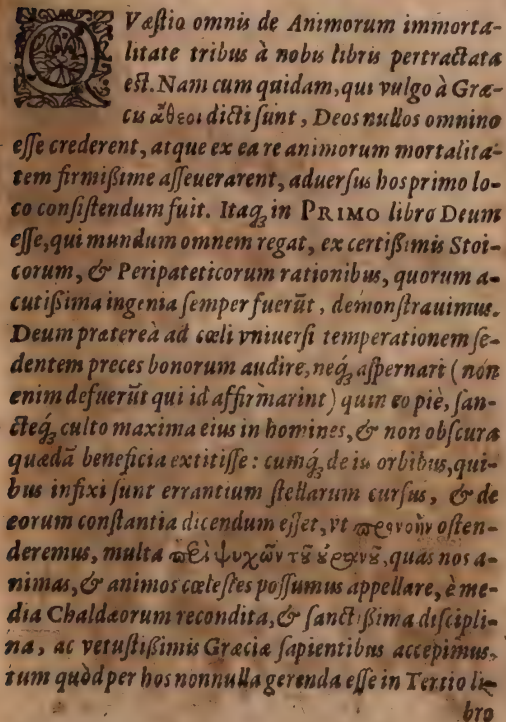 QVæſtio omnis de Animorum immorta-
litate tribus à nobis libris pertractata
eſt. Nam cum quidam, qui vulgo à Græ-
cis ἄθεοι dicti ſunt, Deos nullos omnino
eſſe crederent, atque ex ea re animorum mortalita-
tem firmißime aſſeuerarent, aduerſus hos primo lo-
co conſiſtendum fuit. Itaq́ꝫ in PRIMO libro Deum
eſſe, qui mundum omnem regat, ex certißimis Stoi-
corum, & Peripateticorum rationibus, quorum a-
cutißima ingenia ſemper fuerũt, demonſtrauimus.
Deum prætereà ad cœli vniuerſi temperationem ſe-
dentem preces bonorum audire, neq́ꝫ aſpernari (non
enim defuerũt qui id affirmarint) quin eo piè, ſan-
cteq́ꝫ culto maxima eius in homines, & non obſcura
quædã beneficia extitiſſe: cumq́ꝫ de iis orbibus, qui-
bus infixi ſunt errantium ſtellarum curſus, & de
eorum conſtantia dicendum eſſet, vt προνοῆν oſten-
deremus, multa περὶ ψυχῶν τοῦ οὐρανοῦ, quas nos a-
nimas, & animos cœleſtes poſſumus appellare, è me-
dia Chaldæorum recondita, & ſanctißima diſcipli-
na, ac vetuſtißimis Græciæ ſapientibus accepimus.
tum quòd per hos nonnulla gerenda eſſe in Tertio li-
bro